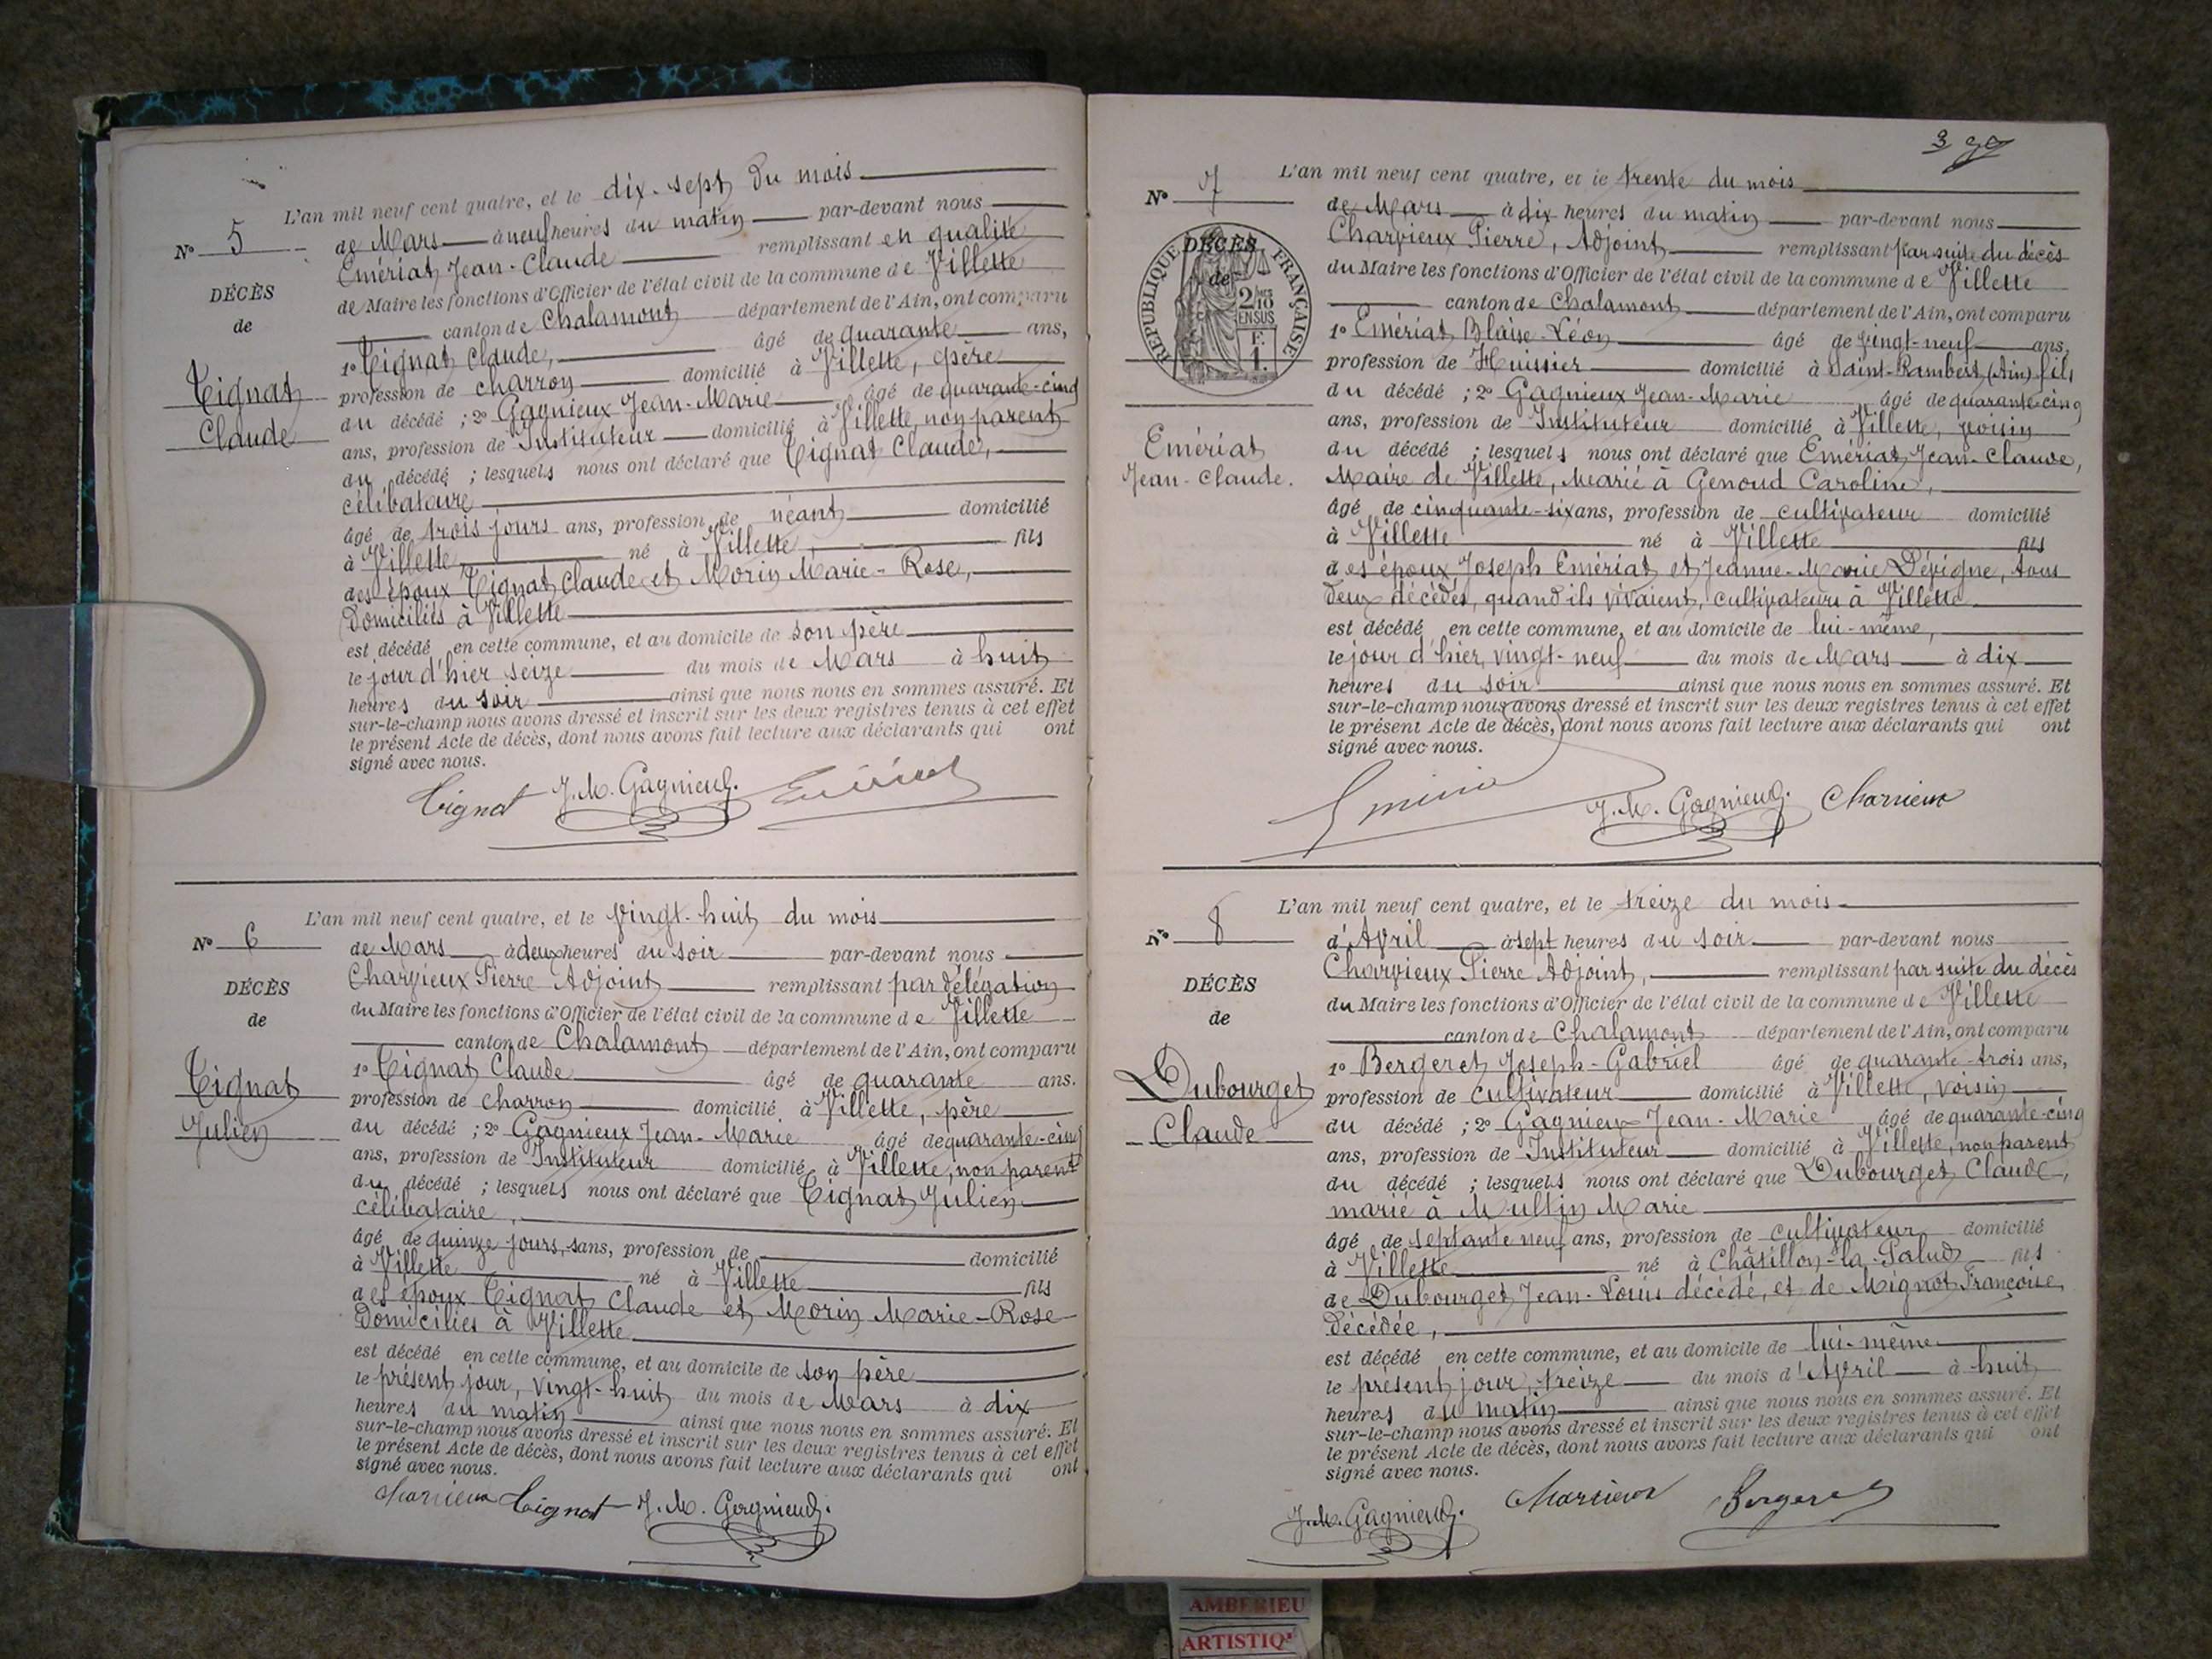 L'an mil neuf cent quatre, et le dix-sept du mois
N° 5
de Mars à neuf heures du matin par-devant nous
Emériat Jean-Claude remplissant en qualité
DÉCÈS
de Maire les fonctions d'Officier de l'état civil de la commune de Villette
de
canton de Chalamont département de l'Ain, ont comparu
1° Tignat Claude, âgé de quarante ans,
Tignat
profession de charron domicilié à Villette, père
Claude
du décédé ; 2° Gagnieux Jean-Marie âgé de quarante-cinq
ans, profession de Instituteur domicilié à Villette, non parent
du décédé ; lesquels nous ont déclaré que Tignat Claude,
célibataire
âgé de trois jours ans, profession de néant domicilié
à Villette né à Villette, fils
des époux Tignat Claude et Morin Marie-Rose,
domiciliés à Villette
est décédé en cette commune, et au domicile de son père
le jour d'hier seize du mois de Mars à huit
heures du soir ainsi que nous nous en sommes assuré. Et
sur-le-champ nous avons dressé et inscrit sur les deux registres tenus à cet effet
le présent Acte de décès, dont nous avons fait lecture aux déclarants qui ont
signé avec nous.
Tignat J. M. Gagnieux.
L'an mil neuf cent quatre, et le vingt-huit du mois
N° 6
de Mars à deux heures du soir par-devant nous
Charvieux Pierre Adjoint remplissant par délégation
DÉCÈS
du Maire les fonctions d'Officier de l'état civil de la commune de Villette
de
canton de Chalamont département de l'Ain, ont comparu
1° Tignat Claude âgé de quarante ans.
Tignat
profession de charron domicilié à Villette, père
Julien
du décédé ; 2° Gagnieux Jean-Marie âgé de quarante-cinq
ans, profession de Instituteur domicilié à Villette, non parent
du décédé ; lesquels nous ont déclaré que Tignat Julien
célibataire,
âgé de quinze jours, sans, profession de domicilié
à Villette né à Villette fils
des époux Tignat Claude et Morin Marie-Rose
domiciliés à Villette
est décédé en cette commune, et au domicile de son père
le présent jour, vingt-huit du mois de Mars à dix
heures du matin ainsi que nous nous en sommes assuré. Et
sur-le-champ nous avons dressé et inscrit sur les deux registres tenus à cet effet
le présent Acte de décès, dont nous avons fait lecture aux déclarants qui ont
signé avec nous.
Charvieux Tignat J. M. Gagnieux.
3
L'an mil neuf cent quatre, et le trente du mois
N° 7
de Mars à dix heures du matin par-devant nous
Charvieux Pierre, Adjoint remplissant par suite du décès
DÉCÈS
de
RÉPUBLIQUE FRANÇAISE
2/10 EN SUS
F. 1.
du Maire les fonctions d'Officier de l'état civil de la commune de Villette
canton de Chalamont département de l'Ain, ont comparu
1° Emériat Blaise-Léon âgé de vingt-neuf ans,
profession de Huissier domicilié à Saint-Rambert, (Ain) fils
du décédé ; 2° Gagnieux Jean-Marie âgé de quarante cinq
ans, profession de Instituteur domicilié à Villette, voisin
Emériat
Jean-Claude.
du décédé ; lesquels nous ont déclaré que Emériat Jean-Claude,
Maire de Villette, Marié à Genoud Caroline,
âgé de cinquante-six ans, profession de cultivateur domicilié
à Villette né à Villette fils
des époux Joseph Emériat et Jeanne-Marie Dévigne, tous
deux décédés, quand ils vivaient, cultivateurs à Villette
est décédé en cette commune, et au domicile de lui-même,
le jour d'hier, vingt-neuf du mois de Mars à dix
heures du soir ainsi que nous nous en sommes assuré. Et
sur-le-champ nous avons dressé et inscrit sur les deux registres tenus à cet effet
le présent Acte de décès, dont nous avons fait lecture aux déclarants qui ont
signé avec nous.
J. M. Gagnieux. Charvieux
L'an mil neuf cent quatre, et le treize du mois
N° 8
d'Avril à sept heures du soir par-devant nous
Charvieux Pierre Adjoint, remplissant par suite du décès
DÉCÈS
du Maire les fonctions d'Officier de l'état civil de la commune de Villette
de
canton de Chalamont département de l'Ain, ont comparu
1° Bergeret Joseph-Gabriel âgé de quarante-trois ans,
Dubourget
profession de cultivateur domicilié à Villette, voisin
Claude
du décédé ; 2° Gagnieux Jean-Marie âgé de quarante-cinq
ans, profession de Instituteur domicilié à Villette, non parent
du décédé ; lesquels nous ont déclaré que Dubourget Claude,
marié à Multin Marie
âgé de septante neuf ans, profession de cultivateur domicilié
à Villette né à Châtillon-la-Palud fils
de Dubourget Jean-Louis décédé, et de Mignot Françoise,
décédée,
est décédé en cette commune, et au domicile de lui-même
le présent jour, treize du mois d'Avril à huit
heures du matin ainsi que nous nous en sommes assuré. Et
sur-le-champ nous avons dressé et inscrit sur les deux registres tenus à cet effet
le présent Acte de décès, dont nous avons fait lecture aux déclarants qui ont
signé avec nous.
J. M. Gagnieux. Charvieux Bergeret
AMBERIEU
ARTISTIQ